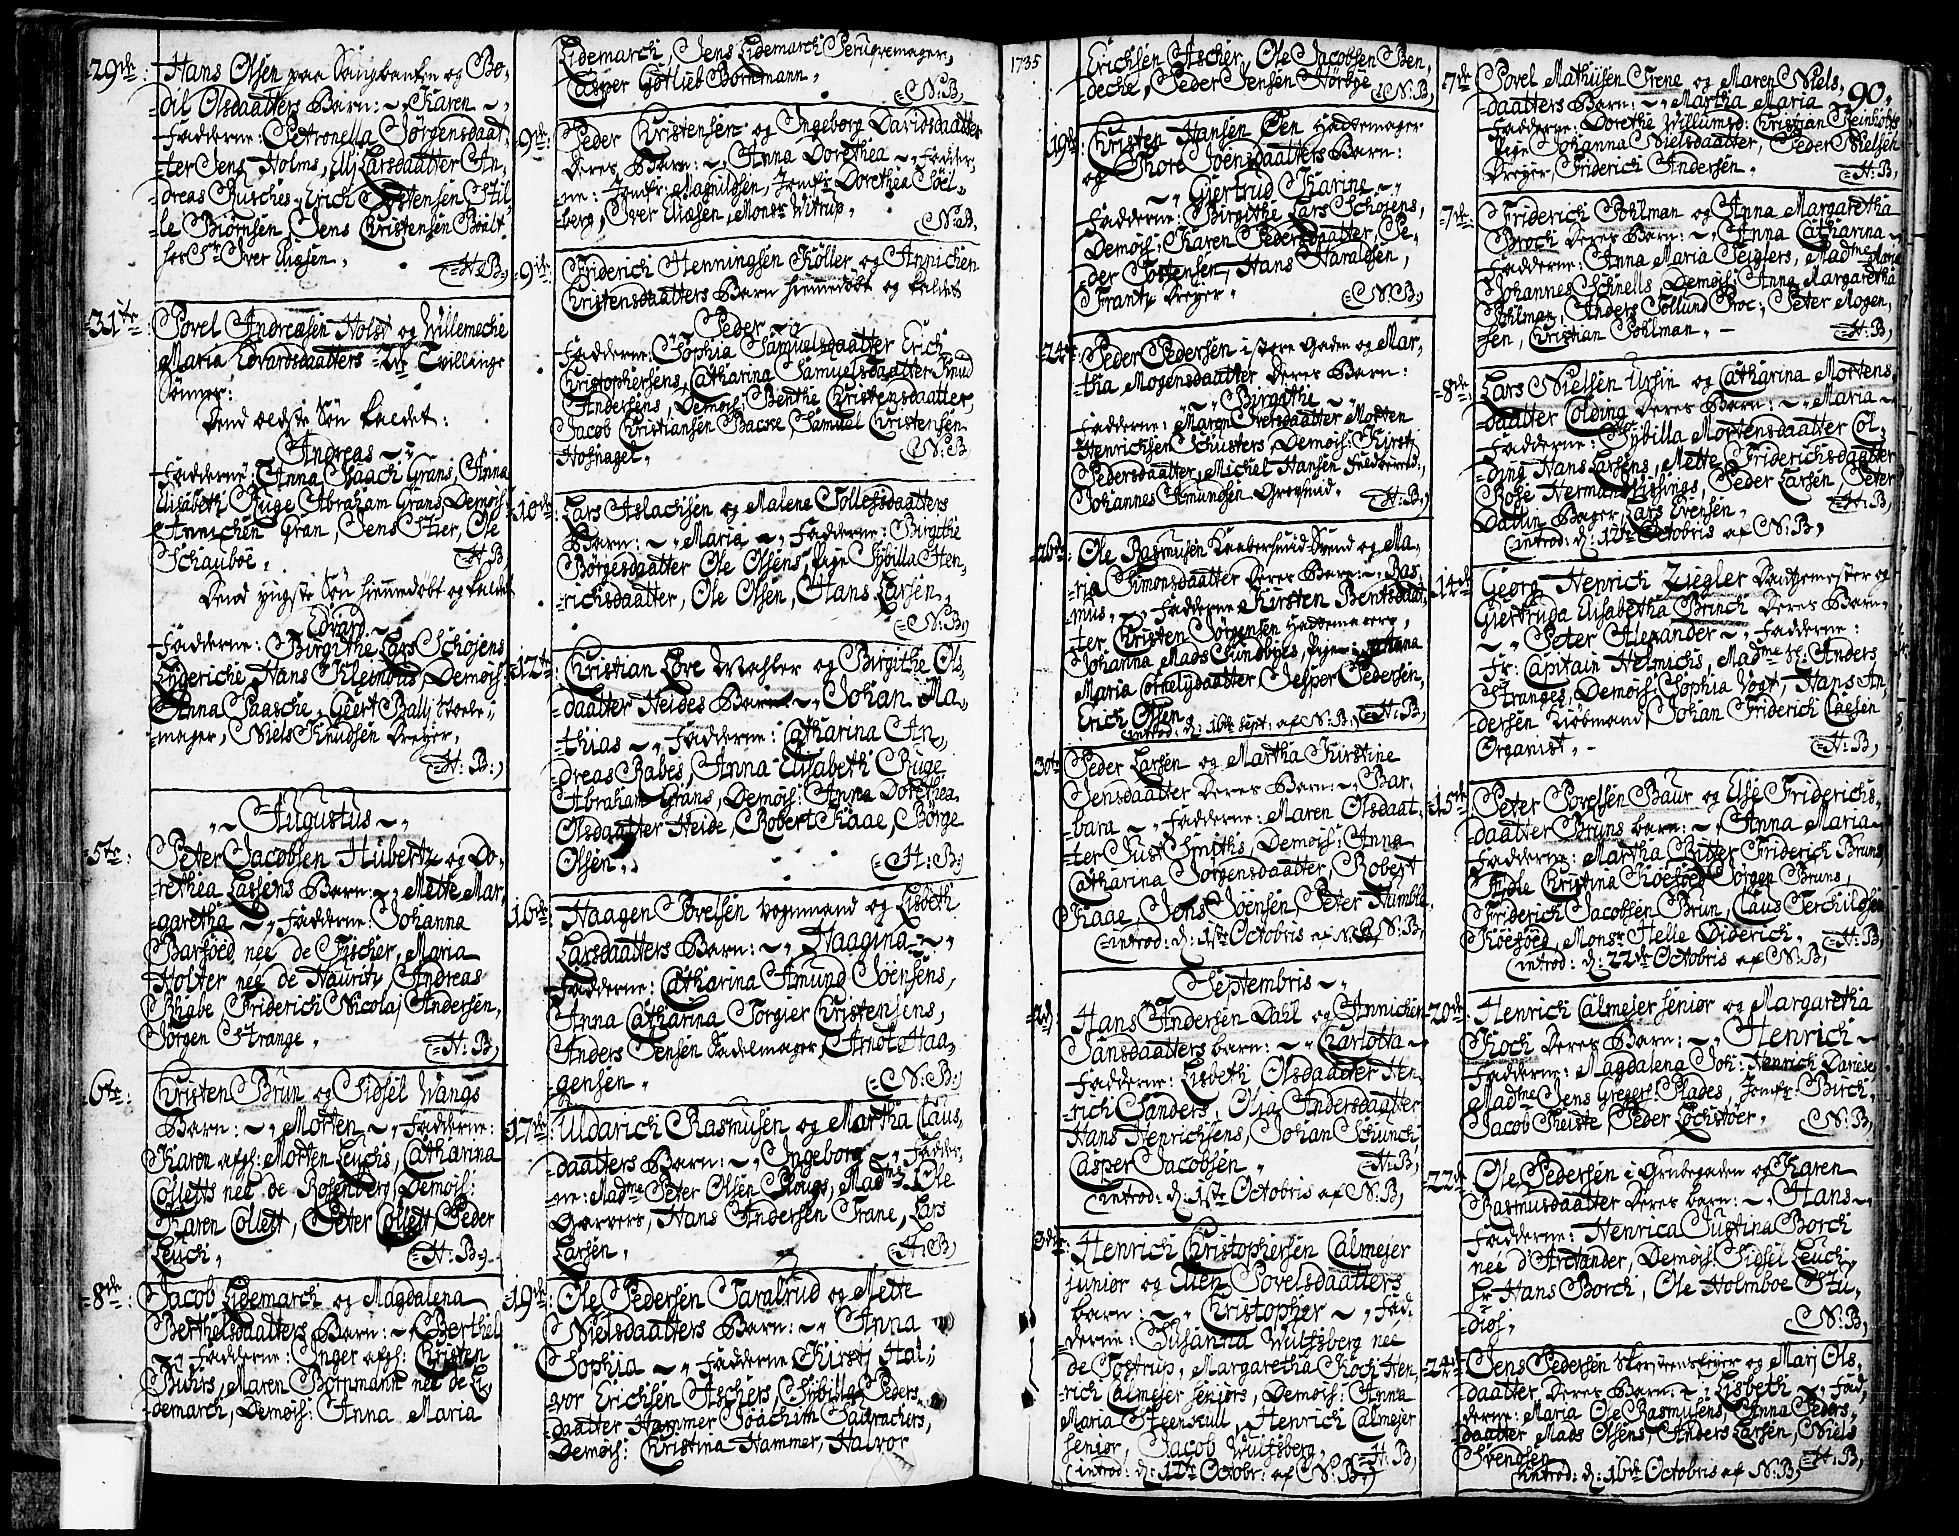 -29de:
Hans Olsen paa Saugbanken og Bo-
dil Olsdaatters Barn: Karen
Fadderne: Petronella Jørgensdaat-
ter Jens Holms, Elli Larsdaatter An-
dreas Rusches, Erich Tostensen, Stil-
le Biørnsen, Jens Christensen
Iver Eliesen,
=H:B,
-31te
Povel Andreasen Holst og Willemeche
Maria Edvardsdaatters 2de Tvillinge
Sønner:
Dend ældste Søn kaldet:
Andreas
Fadderne: Anna Isaach Grans, Anna
Elisabeth Ruge Abraham Grans, Demois:
Annichen Gran, Jens Stier, Ole
Schauboe,
H:B,
Dend yngste Søn hiemmedøbt og kaldet
Edvard
Fadderne: Birgithe Lars Schøjens
Enderiche Hans Kleinous, Demois:
Anna Paasche, Geert Ballj Stoele-
mager, Niels Knudsen Dreyer,
=H:B:,
Augustus
-5te:
Peter Jacobsen Hubertz og Do-
rethea Lassens Barn: Mette Mar-
garetha Fadderne: Johanna
Barfoed née de Fischer, Maria
Holter née de Nauritz, Andreas
Rhigbe Friderich Nicolaj Andersen,
Jørgen Strange,
=H:B,
6te:
Christen Brun og Sidsel Wangs
Barn: Morten Fadderne:
Karen afg: Morten Leuchs, Catharina
Colletts née de Rosenberg, Demois:
Karen Collett, Peter Collett, Peder
Leuch,
=H:B,
-8de:
Jacob Lidemarch og Magdalena
Berthelsdaatters Barn: Berthel
Fadderne: Inger afg: Christen
Buhrs, Maren Bornmann née de Li-
demarch, Demois: Anna Maria
Lidemarch, Jens Lidemarch Peruqvemager,
Casper Gotlieb Bornmann,
=N:B,
-9de:
Peder Christensen og Ingeborg Davidsdaatter
deres Barn: Anna Dorethea Fadder-
ne: Jomfr: Magnildsen, Jomfr: Dorethea Søel-
berg, Iver Eliesen, Monsr Witrup,
=N:B,
-9de:
Friderich Henningsen Køller og Annichen
Christensdaatters Barn hiemmedøbt og kaldet
Peder
Fadderne: Sophia Samuelsdaatter Erich
Christophersens, Catharina Samuelsdaatter Knud
Andersens, Demois: Benthe Christensdaatter,
Jacob Christiansen Backe, Samuel Christensen
Hofnagel,
=N:B
-10de:
Lars Aslachsen og Malene Tollefsdaatters
Barn: Maria Fadderne: Birgithe
Børgesdaatter Ole Olsens, Pige Sybilla Hen-
richsdaatter, Ole Olsen, Hans Larsen,
=N:B,
-12te:
Christian Løve Wachter og Birgithe Ols-
daatter Heides Barn Johan Ma-
thias Fadderne: Catharina An-
dreas Rabes, Anna Elisabeth Ruge
Abraham Grans, Demois: Anna Dorethea
Olsdaatter Heide, Robert Kaae, Børge
Olsen,
=H:B,
16de:
Haagen Povelsen Vognmand og Lisbeth
Larsdaatters Barn: Haagina
Fadderne: Catharina Amund Joensens,
Anna Catharina Torgier Christensens,
Anders Jensen Sadelmager, Arndt Haa-
gensen
=N:B:,
-17de:
Uldarich Rasmusen og Martha Claus-
daatters Barn: Ingeborg Fadder-
ne: Madme Peter Olsen Rougs, Madme Ole
Garvers, Hans Andersen Trane, Lars
Larsen,
=H:B,
-19de:
Ole Pedersen Taralrud og Mette
Nielsdaatters Barn: Anna
Sophia Fadderne: Kirsti Hal-
vor Erichsen Aschers, Sybilla Peders-
daatter Hammer Joachim Sadrachers,
Demois: Christina Hammer, Halvor
1735
Erichsen Ascher, Ole Jacobsen Ben-
deche, Peder Jensen Hørbye
=N:B,
-19de:
Christen Hansen Øen Hattemager
og Thore Joensdaatters Barn:
Giertrud Karine
Fadderne: Birgithe Lars Schøjens,
Demois: Karen Pedersdaatter, Pe-
der Tostensen, Hans Haraldsen,
Frantz Dreyer,
=N:B,
-24de
Peder Pedersen i store Gaden og Mar-
tha Mogensdaatter deres Barn:
Birgithe
Fadderne: Maren Iversdaatter Morten
Henrichsen Schusters, Demois: Kirsti
Pedersdaatter, Michel Hansen
Johannes Amundsen Grovsmid,
=H:B,
-26de:
Ole Rasmusen Kaabersmid Svend og Ma-
ria Simonsdaatter deres Barn: Ras-
mus, Fadderne: Kirsten Bentsdaat-
ter Christen Jørgensen Hattemagers,
Johanna Mads Sundbyes, Pige: Johanna
Maria Cornelydaatter, Jesper Pedersen,
Erich Olsen
=H:B,
introd: d: 16de Sept: af N:B,
30te
Peder Larsen og Martha Kirstine
Jensdaatter deres Barn: Bar-
bara Fadderne: Maren Olsdaat-
ter Just Smiths, Demois: Anna
Catharina Jørgensdaatter, Robert
Kaae, Jens Joensen, Peter Humble
=N:B,
introd: d: 1ste Octobris af N:B,
Septembris
-2d
Hans Andersen Dahl og Annichen
Jansdaatters barn: Carlotta
Fadderne: Lisbeth Olsdaatter Hen-
rich Sanders, Olia Andersdaatter
Hans Henrichsens, Johan Schiunch,
Casper Jacobsen,
=H:B,
introd: d: 1ste Octobris af N:B,
3die:
Henrich Christophersen Calmejer
junior og Ellen Povelsdaatters
barn: Christopher Fad-
derne: Susanna Wulfsberg née
de Tostrup, Margaretha Koch Hen-
rich Calmejer Seniors, Demois: Anna
Maria Steenkull, Henrich Calmejer
Senior, Jacob Wulfsberg,
=H:B,
introd: d: 12te Octobr: af N:B,
90.
-7de
Povel Mathiisen Trene og Maren Niels-
daatters Barn: Martha Maria
Fadderne: Dorethe Willumsd: Christian Reinholts
Pige Johanna Nielsdaatter, Peder Nielsen
Dreyer, Friderich Andersen,
=H:B,
-7de:
Friderich Pohlman og Anna Margaretha
Broch deres Barn: Anna Catharina
Fadderne: Anna Maria Zeiglers, Madme Maria
Johannes Schnells Demois: Anna Margaretha
Pohlman, Anders Follund Proc:, Peter Mogen-
sen, Christian Pohlman,
=H:B,
-8de:
Lars Nielsen Ursin og Catharina Mortens-
daatter Colding deres Barn: Maria
Fadderne: Sybilla Mortensdaatter Col-
ding Hans Larsens, Mette Friderichsdaatter
Bose Herman Risings, Peder Larsen, Peter
Dallin Bager, Lars Evensen,
=H:B,
introd: d: 12te Octobris af N:B,
-14de
Georg Henrich Ziegler Dantzemester og
Giertruda Elisabetha Brinch deres Barn,
Peter Alexander Fadderne:
Fr: Capitain Helmichs, Madme Sl: Anders
Stranges, Demois: Sophia Vogt, Hans An-
dersen Kiøbmand, Johan Friderich Claesen
Organist,
=H:B,
-15de
Peter Povelsen Baur og Else Friderichs-
daatter Bruns barn: Anna Maria
Fadderne: Martha Ritter Friderich Bruns,
Sidle Christina Koefoed Jørgen Bruns,
Friderich Jacobsen Brun, Claus Terchildsen
Koefoed, Monsr Helle Diderich,
=H:B,
introd: d: 22de Octobris af N:B,
-20de
Henrich Calmejer Senior og Margaretha
Koch deres Barn: Henrich
Fadderne: Magdalena Joh: Henrich Darieses
Madme Jens Gregers: Rlades, Jomfr: Birch,
Jacob Theiste, Peder Lochstøer,
=N:B,
-22de
Ole Pedersen i Grubegaden og Karen
Rasmusdaatter deres barn: Hans
Fadderne: Henrica Justina Borch
née d'Arctander, Demois: Sidsel Leuch,
Hr Hans Borch, Ole Holmboe Stu-
dios,
=N:B,
-24de
Jens Pedersen Skorsteensfejer og Mari Ols-
daatter deres Barn: Lisbeth Fad-
derne: Maria Ole Rasmusens, Anna Peders-
daatter Mads Olsens, Anders Larsen, Niels
Svendsen
=H:B,
introd: d: 16de Octobris af N:B,